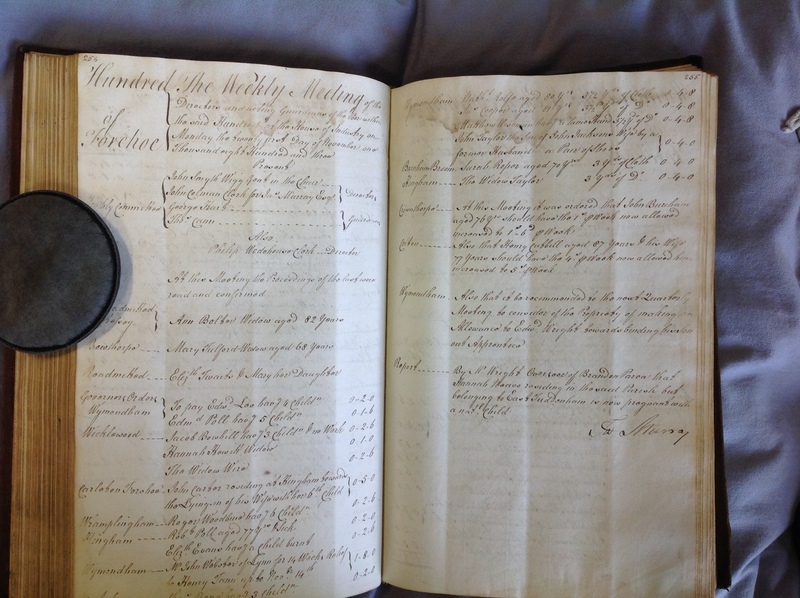 254
Hundred of Forehoe
The Weekly Meeting of the
Directors and acting Guardians of the Poor within
the said Hundred & of the House of Industry on
Monday the twenty first day of November one
Thousand eight Hundred and three
Present
John Smyth Wigg Gent in the Chair
John Colman Clerk for Jno. Murray Esqr.
George Hart
Thos. Cann
Directors
Guardians
Also
Philip Wodehouse Clerk Director
At this Meeting the Proceedings of the last were
read and confirmed
Ann Bolter Widow aged 82 Years
Mary Tilford Widow aged 68 Years
Elizth Twaits & Mary her Daughter
Governor Order
Wymondham
To pay Edwd. Loo hav'g 4 Childn 0-2-0
Edmd Poll hav'g 5 Childn 0-1-6
Wicklewood Jacob Bowhill hav'g 3 Childn & no Work 0-2-6
Hannah Howell Widow 0-1-0
The Widow Wire 0-2-6
Carleton Forehoe John Carter residing at Hingham towards
the Lying in of his Wife with her 6th Child 0-5-0
Wramplingham Roger Woodbine hav'g 6 Childn 0-2-6
Hingham Robt. Poll aged 77 Yrs & Sick 0-2-0
Elizth Evans hav'g a Child burnt 0-2-6
Wymondham Mr John Webster of Lynn for 14 Weeks Relief
to Henry Tann up to Novr. 14th 1-8-0
0-2-0
255
Wymondham
0-4-8
0-4-8
0-4-8
John Taylor Son of John Jacksons Wife by a
former Husband a Pair of Shoes 0-4-0
Barnham Broom Sarah Roper aged 70 Yrs 3 Yds of Cloth 0-4-0
Hingham The Widow Taylor 3 Yds of Do 0-4-0
Crownthorpe At this Meeting it was ordered that John Burcham
aged 76 Yrs should have the 1s. p Week now allowed
increased to 1s. 6d. p Week
Coston Also that Henry Cuthell aged 87 Years & his Wife
77 Years should have the 4s. p Week now allowed them
increased to 5s. p Week
Wymondham Also that it be recommended to the next Quarterly
Meeting to consider of the Propriety of making an
Allowance to Edwd. Wright towards binding his Son
out Apprentice
Report By Mr. Wright Overseer of Brandon Parva that
Hannah Howes residing in the said Parish but
belonging to East Tuddenham is now pregnant with
a Child
Murray